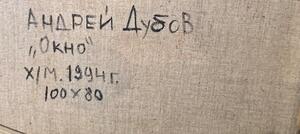 АНДРЕЙ Дубов
„Окно"
Х/М. 1994 г.
100х80